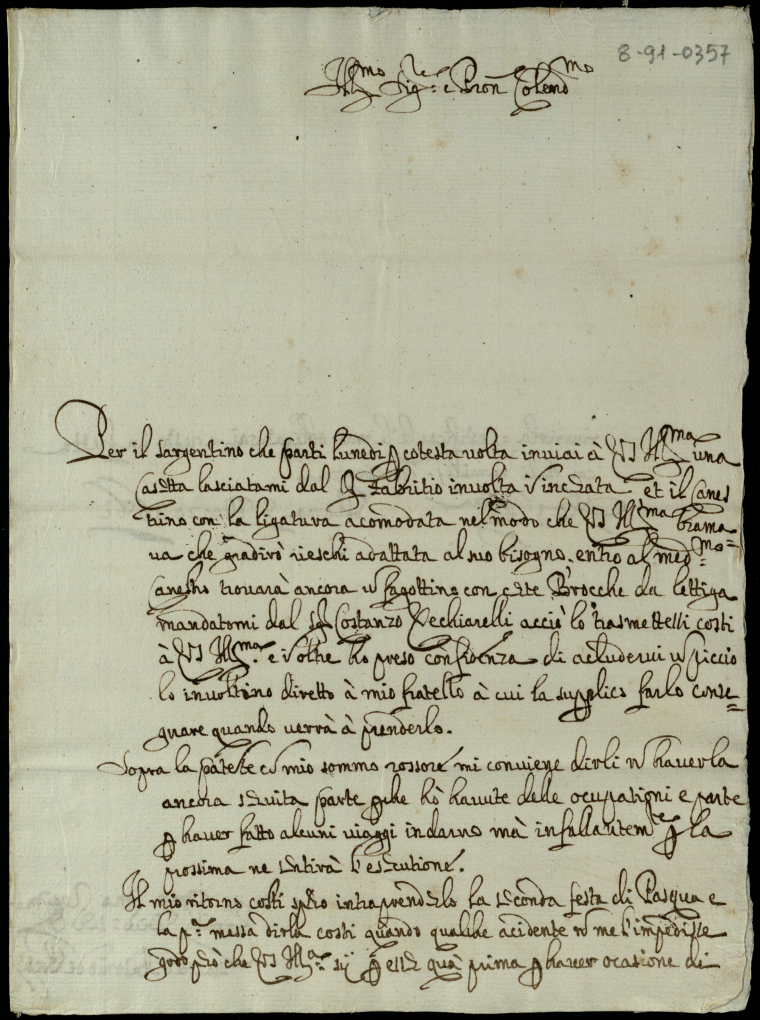 8-91-0357
Ill.mo Sig.re e Pron Colend.mo
Per il sargentino che partì lunedì p cotesta volta inviai à VS Ill.ma una
Casetta lasciatami dal Fabritio involta in incerata et il Canes
trino con la ligatura acomodata nel modo che VS Ill.ma brama
va che gradirò rieschi adattata al suo bisogno. entro al med.mo
Canestro trovarà ancora un fagottino con Brocche da lettiga
mandatomi dal Costanzo Vechiarelli acciò lo trasmettessi costi
à VS Ill.ma e inoltre hò preso confidenza di acludervi un piccio
lo involtino diretto à mio fratello à cui la supplico farlo conse
gnare quando verrà à prenderlo.
Sopra la patente con mio sommo rossore mi conviene dirli non haverla
ancora servita parte p che hò havute delle ocupationi e parte
p haver fatto alcuni viaggi indarno mà infallantem.te p la
prossima ne sentirà l'esecutione.
Il mio ritorno costi spero intraprenderlo la seconda festa di Pasqua e
la p.a messa dirla costi quando qualche acidente non me l'impedisse
godo però che VS Ill.ma sij p esser quà prima p haver ocasione di